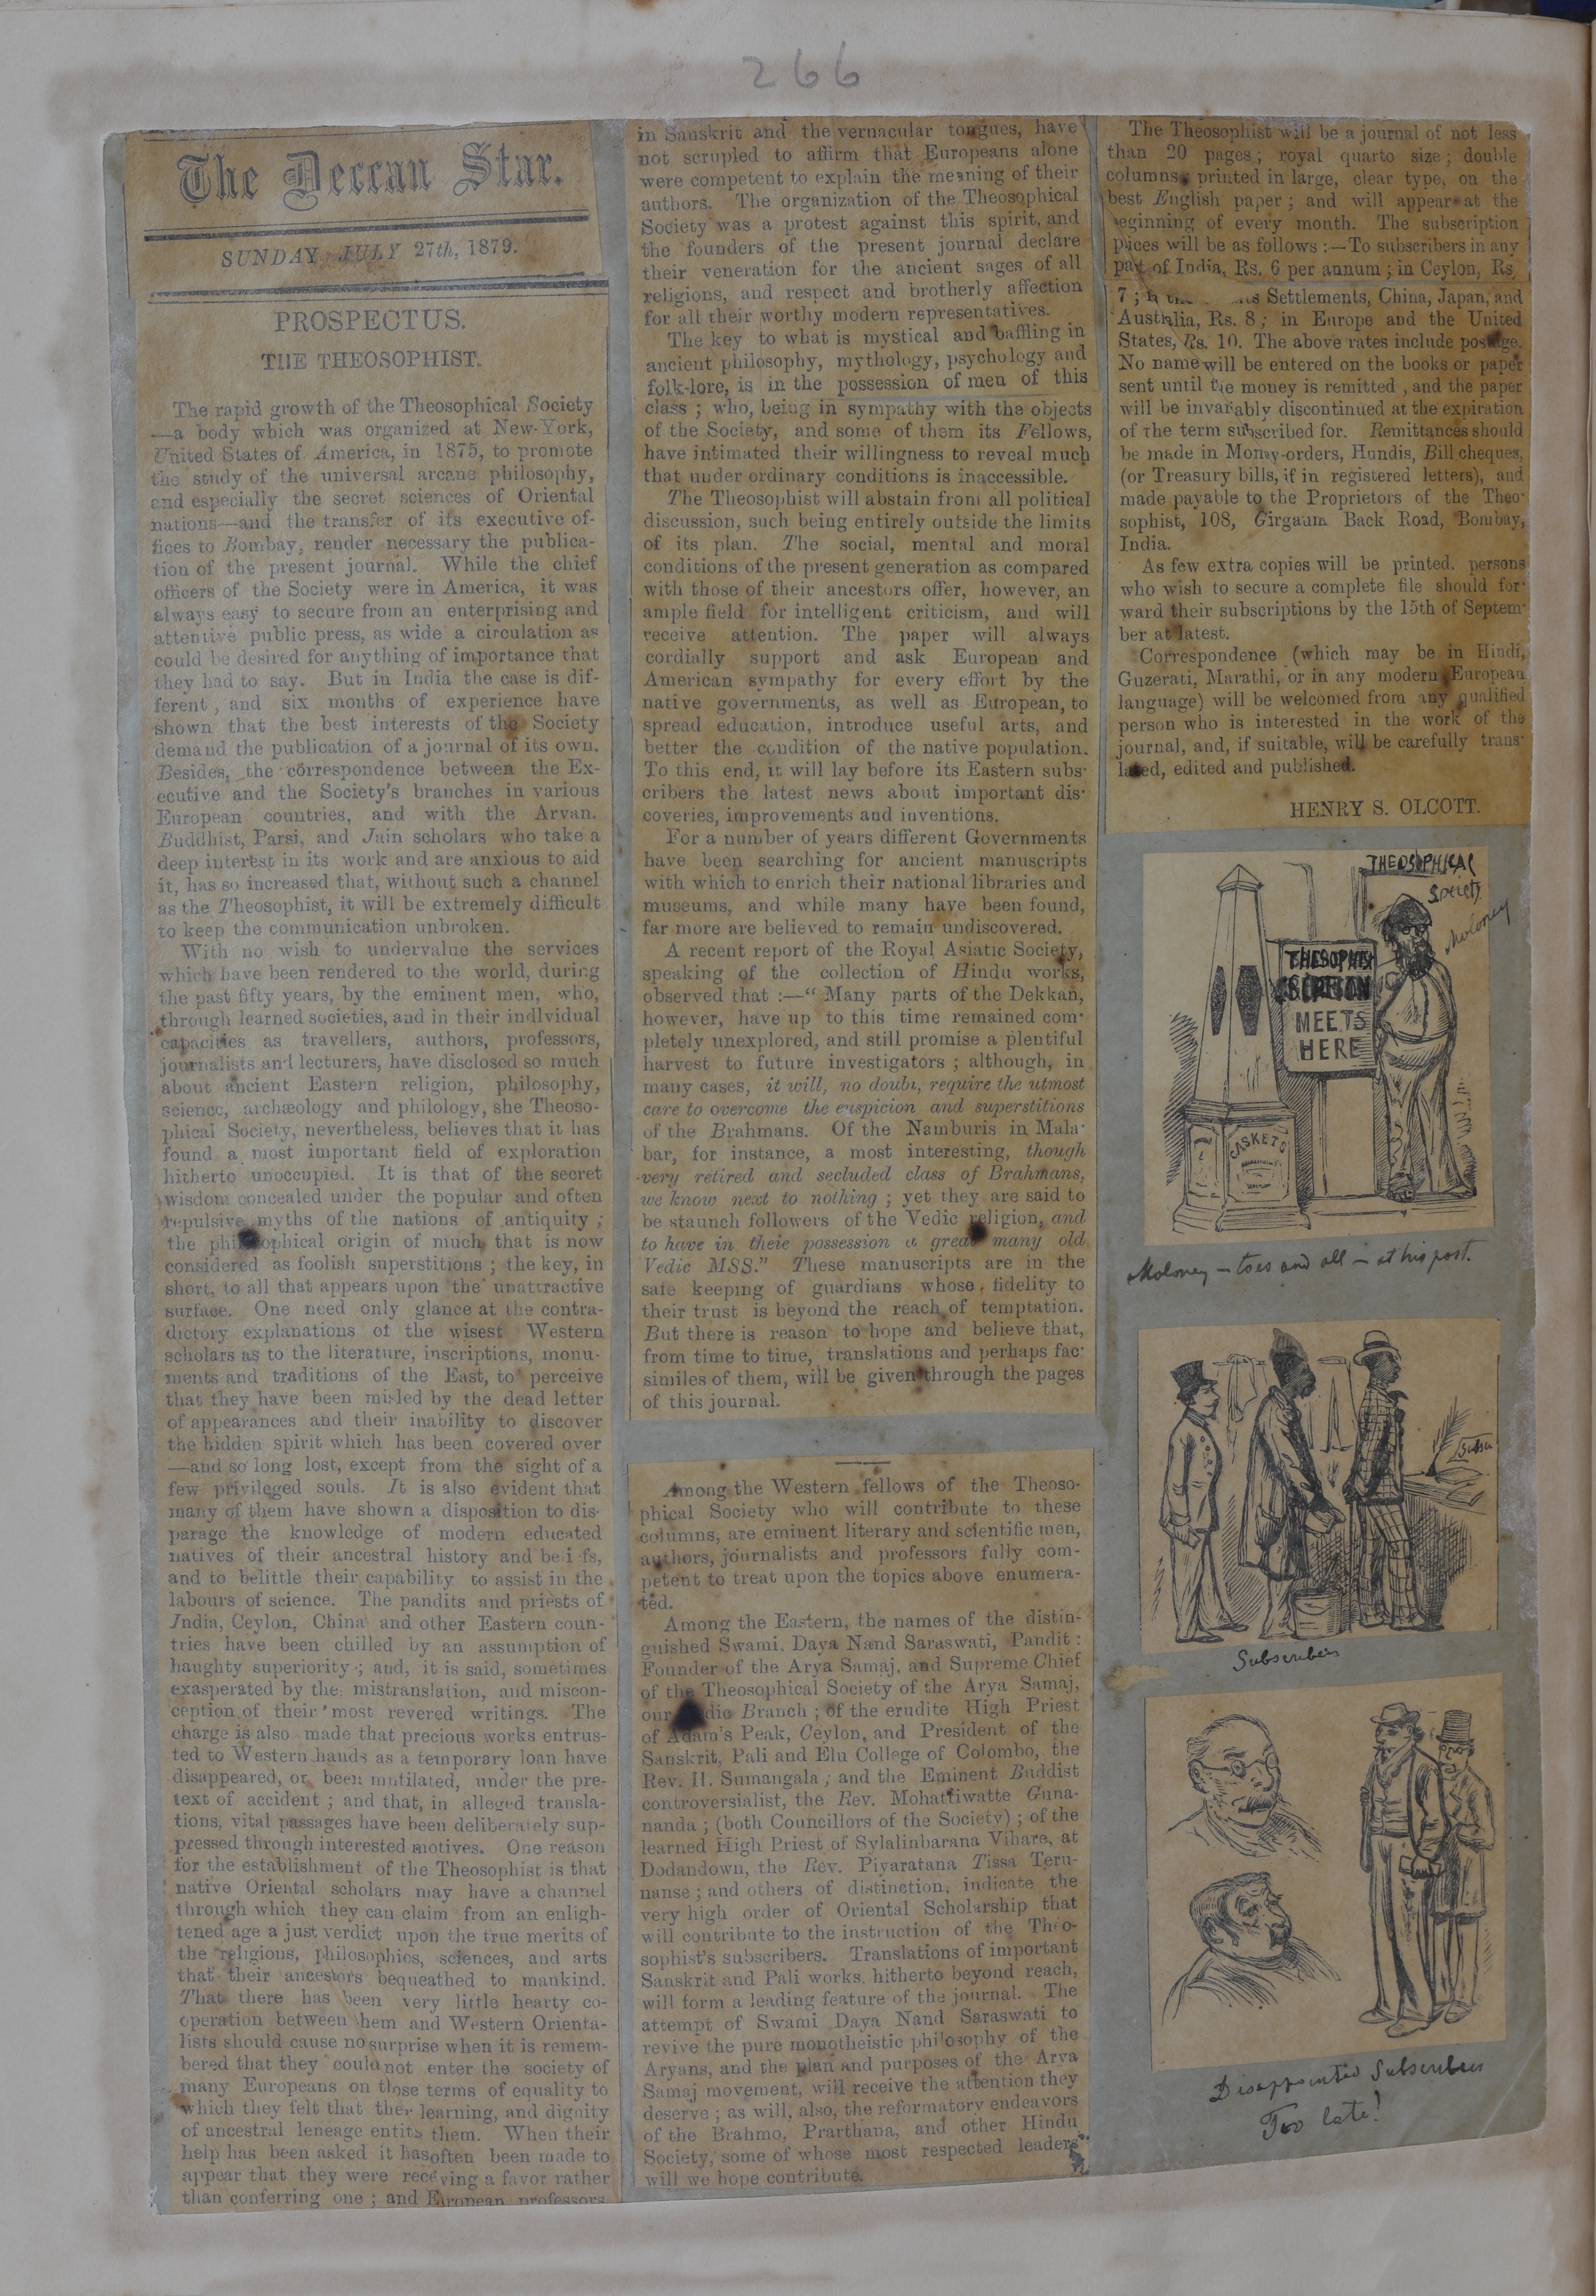 266
The Deccan Star.
SUNDAY JULY 27th, 1879.
PROSPECTUS.
THE THEOSOPHIST.
The rapid growth of the Theosophical Society
—a body which was organized at New-York,
United States of America, in 1875, to promote
the study of the universal arcane philosophy,
and especially the secret sciences of Oriental
nations—and the transfer of its executive of-
fices to Bombay, render necessary the publica-
tion of the present journal. While the chief
officers of the Society were in America, it was
always easy to secure from an enterprising and
attentive public press, as wide a circulation as
could be desired for anything of importance that
they had to say. But in India the case is dif-
ferent, and six months of experience have
shown that the best interests of the Society
demand the publication of a journal of its own.
Besides, the correspondence between the Ex-
ecutive and the Society's branches in various
European countries, and with the Aryan.
Buddhist, Parsi, and Jain scholars who take a
deep interest in its work and are anxious to aid
it, has so increased that, without such a channel
as the Theosophist, it will be extremely difficult
to keep the communication unbroken.
With no wish to undervalue the services
which have been rendered to the world, during
the past fifty years, by the eminent men, who,
through learned societies, and in their indlvidual
capacities as travellers, authors, professors,
journalists and lecturers, have disclosed so much
about ancient Eastern religion, philosophy,
science, archæology and philology, she Theoso-
phical Society, nevertheless, believes that it has
found a most important field of exploration
hitherto unoccupied. It is that of the secret
wisdom concealed under the popular and often
repulsive myths of the nations of antiquity ;
the philosophical origin of much that is now
considered as foolish superstitions ; the key, in
short, to all that appears upon the unattractive
surface. One need only glance at the contra-
dictory explanations of the wisest Western
scholars as to the literature, inscriptions, monu-
ments and traditions of the East, to perceive
that they have been misled by the dead letter
of appearances and their inability to discover
the hidden spirit which has been covered over
—and so long lost, except from the sight of a
few privileged souls. It is also evident that
many of them have shown a disposition to dis-
parage the knowledge of modern educated
natives of their ancestral history and beli fs,
and to belittle their capability to assist in the
labours of science. The pandits and priests of
India, Ceylon, China and other Eastern coun-
tries have been chilled by an assumption of
haughty superiority ; and, it is said, sometimes
exasperated by the mistranslation, and miscon-
ception of their most revered writings. The
charge is also made that precious works entrus-
ted to Western hands as a temporary loan have
disappeared, or been mutilated, under the pre-
text of accident ; and that, in alleged transla-
tions, vital passages have been deliberately sup-
pressed through interested motives. One reason
for the establishment of the Theosophist is that
native Oriental scholars may have a channel
through which they can claim from an enligh-
tened age a just verdict upon the true merits of
the religious, philosophies, sciences, and arts
that their ancestors bequeathed to mankind.
That there has been very little hearty co-
operation between hem and Western Orienta-
lists should cause no surprise when it is remem-
bered that they could not enter the society of
many Europeans on those terms of equality to
which they felt that their learning, and dignity
of ancestral leneage entits them. When their
help has been asked it has often been made to
appear that they were receving a favor rather
than conferring one ; and European professors
in Sanskrit and the vernacular tongues, have
not scrupled to affirm that Europeans alone
were competent to explain the meaning of their
authors. The organization of the Theosophical
Society was a protest against this spirit, and
the founders of the present journal declare
their veneration for the ancient sages of all
religions, and respect and brotherly affection
for all their worthy modern representatives.
The key to what is mystical and baffling in
ancient philosophy, mythology, psychology and
folk-lore, is in the possession of men of this
class ; who, being in sympathy with the objects
of the Society, and some of them its Fellows,
have intimated their willingness to reveal much
that under ordinary conditions is inaccessible.
The Theosophist will abstain from all political
discussion, such being entirely outside the limits
of its plan. The social, mental and moral
conditions of the present generation as compared
with those of their ancestors offer, however, an
ample field for intelligent criticism, and will
receive attention. The paper will always
cordially support and ask European and
American sympathy for every effort by the
native governments, as well as European, to
spread education, introduce useful arts, and
better the condition of the native population.
To this end, it will lay before its Eastern subs-
cribers the latest news about important dis-
coveries, improvements and inventions.
For a number of years different Governments
have been searching for ancient manuscripts
with which to enrich their national libraries and
museums, and while many have been found,
far more are believed to remain undiscovered.
A recent report of the Royal Asiatic Society,
speaking of the collection of Hindu works,
observed that :—" Many parts of the Dekkan,
however, have up to this time remained com-
pletely unexplored, and still promise a plentiful
harvest to future investigators ; although, in
many cases, it will, no doubt, require the utmost
care to overcome the suspicion and superstitions
of the Brahmans. Of the Namburis in Mala-
bar, for instance, a most interesting, though
very retired and secluded class of Brahmans,
we know next to nothing ; yet they are said to
be staunch followers of the Vedic religion, and
to have in theie possession a great many old
Vedic MSS." These manuscripts are in the
safe keeping of guardians whose fidelity to
their trust is beyond the reach of temptation.
But there is reason to hope and believe that,
from time to time, translations and perhaps fac-
similes of them, will be given through the pages
of this journal.
Among the Western fellows of the Theoso-
phical Society who will contribute to these
columns, are eminent literary and scientific men,
authors, journalists and professors fully com-
petent to treat upon the topics above enumera-
ted.
Among the Eastern, the names of the distin-
guished Swami, Daya Nand Saraswati, Pandit :
Founder of the Arya Samaj, and Supreme Chief
of the Theosophical Society of the Arya Samaj,
our Branch ; of the erudite High Priest
of Adam's Peak, Ceylon, and President of the
Sanskrit, Pali and Elu College of Colombo, the
Rev. H. Sumangala ; and the Eminent Buddist
controversialist, the Rev. Mohattiwatte Guna-
nanda ; (both Councillors of the Society) ; of the
learned High Priest of Sylalinbarana Vihare, at
Dodandown, the Rev. Piyaratana Tissa Teru-
nanse ; and others of distinction, indicate the
very high order of Oriental Scholarship that
will contribute to the instruction of the Theo-
sophist's subscribers. Translations of important
Sanskrit and Pali works, hitherto beyond reach,
will form a leading feature of the journal. The
attempt of Swami Daya Nand Saraswati to
revive the pure monotheistic philosophy of the
Aryans, and the plan and purposes of the Arya
Samaj movement, will receive the attention they
deserve ; as will, also, the reformatory endeavors
of the Brahmo, Prarthana, and other Hindu
Society, some of whose most respected leaders
will we hope contribute.
The Theosophist will be a journal of not less
than 20 pages ; royal quarto size ; double
columns printed in large, clear type, on the
best English paper ; and will appear at the
beginning of every month. The subscription
prices will be as follows :—To subscribers in any
part of India, Rs. 6 per annum ; in Ceylon, Rs
7 ; Settlements, China, Japan, and
Australia, Rs. 8 ; in Europe and the United
States, Rs. 10. The above rates include postage.
No name will be entered on the books or paper
sent until the money is remitted , and the paper
will be invariably discontinued at the expiration
of the term subscribed for. Remittances should
be made in Money-orders, Hundis, Bill cheques,
(or Treasury bills, if in registered letters), and
made payable to the Proprietors of the Theo-
sophist, 108, Girgaum Back Road, Bombay,
India.
As few extra copies will be printed. persons
who wish to secure a complete file should for-
ward their subscriptions by the 15th of Septem-
ber at latest.
Correspondence (which may be in Hindi,
Guzerati, Marathi, or in any modern European
language) will be welcomed from any qualified
person who is interested in the work of the
journal, and, if suitable, will be carefully trans-
lated, edited and published.
HENRY S. OLCOTT.
THEOSOPHICAL
Society
Moloney
THEOSOPHIST
MEETS
HERE
CASKETS
Moloney — toes and all — at his post.
Subscr
Subscribers
Disappointed Subscribers
Too late!